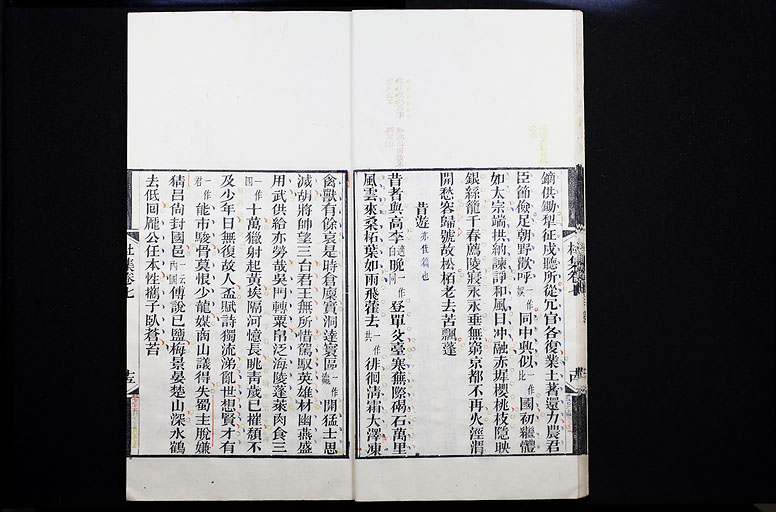 鏑供鋤犁征戍聽所從冗官各復業土著還力農君
臣節儉足朝野歡呼一作娛同中興似一作比國初繼體
如太宗端拱納諫諍和風日沖融赤墀櫻桃枝隱映
銀絲籠千春薦陵寢永永垂無窮京都不再火涇渭
開愁容歸號故松柏老去苦飄蓬
昔遊
昔者與高李適白晚一作同登單父臺寒蕪際碣石萬里
風雲來桑柘葉如雨飛藿去一作共徘徊清霜大澤凍
禽獸有餘哀是時倉廩實洞達寰區一作瀛開猛士思
滅胡將帥望三台君王無所惜駕馭英雄材幽燕盛
用武供給亦勞哉吳門轉粟帛泛海陵蓬萊肉食三
一作四十萬獵射起黃埃隔河憶長眺青歲已摧頹不
及少年日無復故人盃賦詩獨流涕亂世想賢才有
一作君能市駿骨莫恨少龍媒商山議得失蜀主脫嫌
猜呂尚封國邑一云內國傅說已鹽梅景晏楚山深水鶴
去低回龐公任本性攜子臥蒼苔
杜集卷七